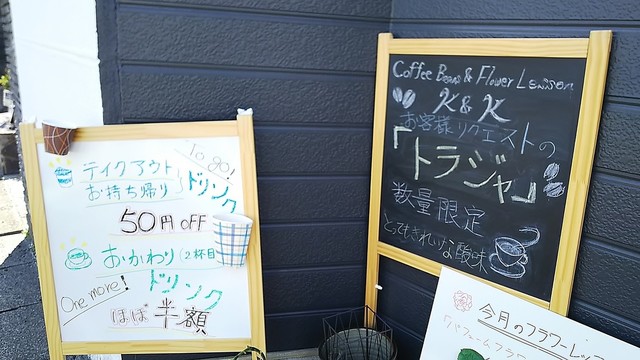 To go!
テイクアウト
お持ち帰り
ドリンク
50円 OFF
おかわり(2杯目)
One more!
ドリンク
ほぼ半額
Coffee Beans & Flower Lesson
K & K
お客様リクエストの
「トラジャ」
数量限定
とってもきれいな酸味
今月のフラワーレッ